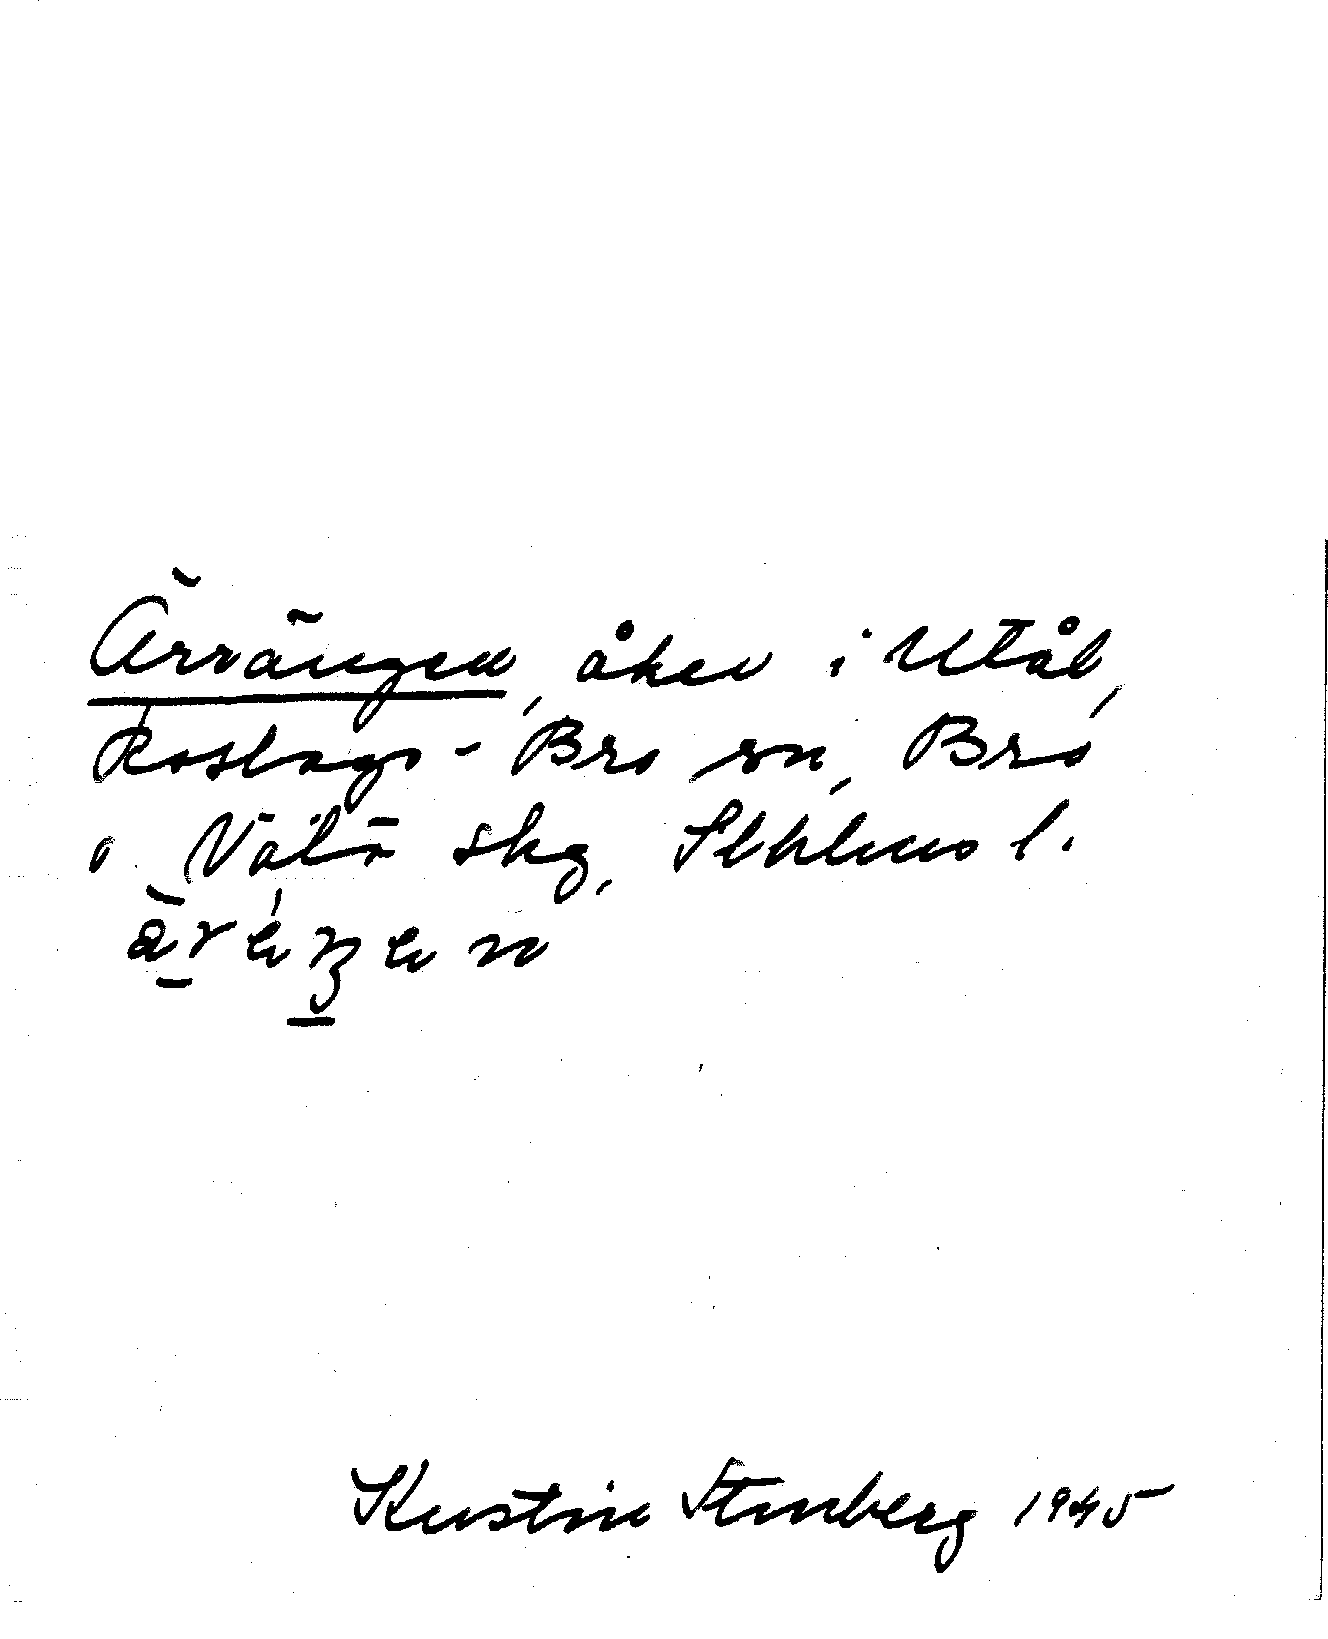 Ärrängen, åker i Utål,
Roslags-Bro sn, Bro
o. Vätö skg, Sthlms l.
Kerstin Stenberg 1945